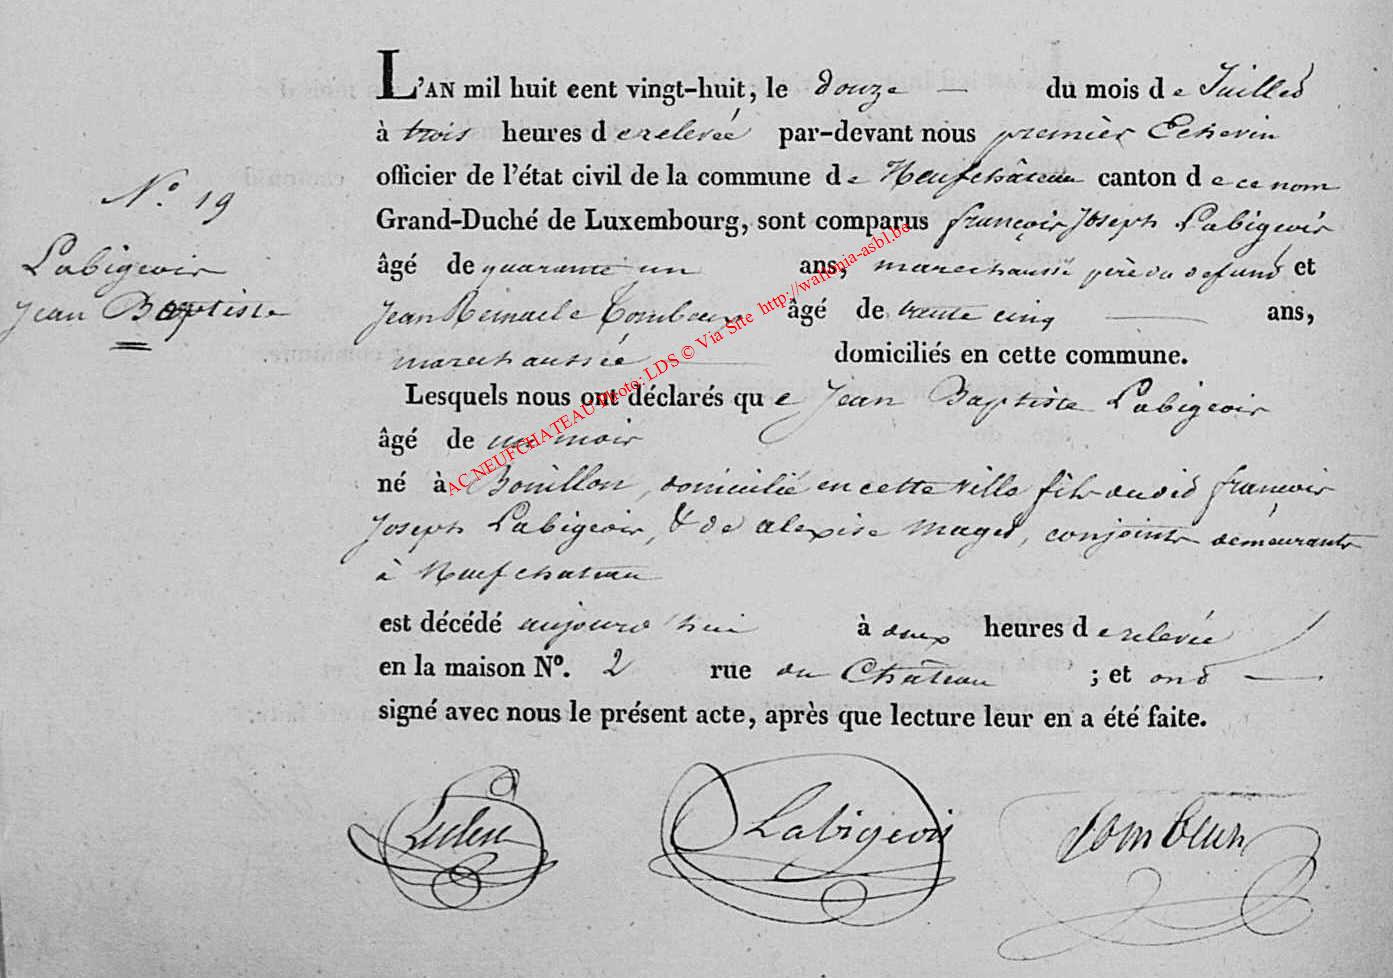 L'AN mil huit cent vingt-huit, le douze du mois de Juillet
à trois heures de relevée par-devant nous premier Echevin
officier de l'état civil de la commune de Neufchâteau canton de ce nom
Grand-Duché de Luxembourg, sont comparus françois Joseph Labigeois
âgé de quarante un ans, marechaussé père du defunt et
Jean Tombeur âgé de trente cinq ans,
marechaussée domiciliés en cette commune.
Lesquels nous ont déclarés que Jean Baptiste Labigeois
âgé de un mois
né à Bouillon, domicilié en cette ville fils dudit françois
Joseph Labigeois, & de alexise maget, conjoints demeurants
à Neufchateau
est décédé aujourd'hui à deux heures de relevée
en la maison Nº. 2 rue du Château ; et ont
signé avec nous le présent acte, après que lecture leur en a été faite.
Nº 19
Labigeois
Jean Baptiste
AC NEUFCHATEAU Photo: LDS © Via Site http://wallonia-asbl.be
Labigeois
Tombeur